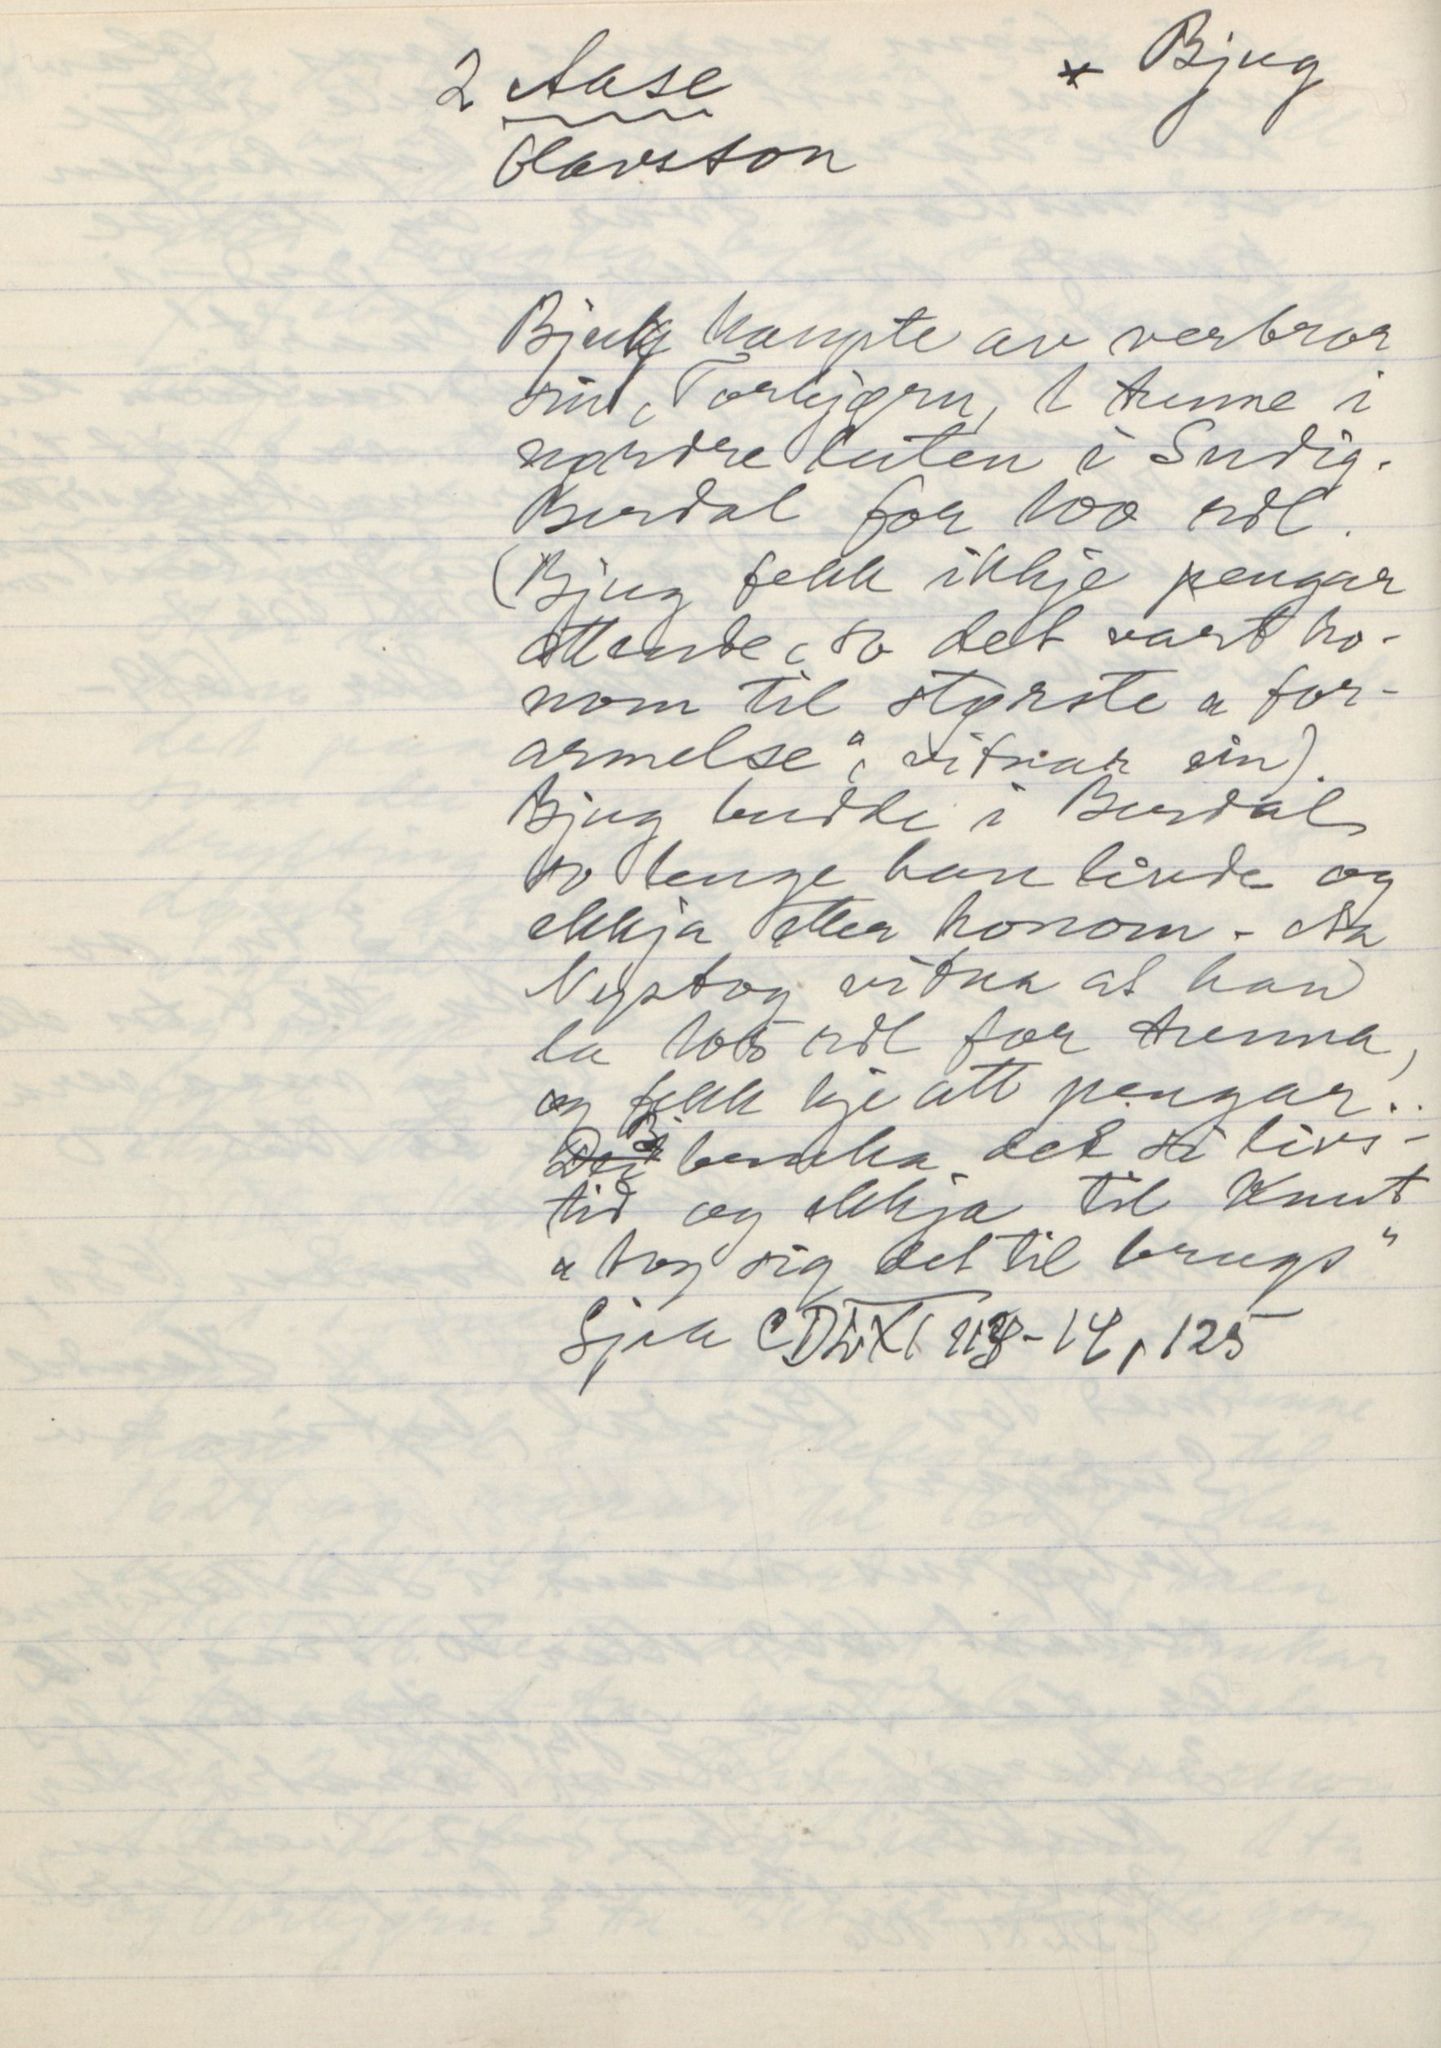 2 Aase
Olavsson
* Bjug
Bjug kaupte av verbror
sin, Torbjørn, 1 tunne i
nørdre luten i Sudig.
Burdal for 100 rdl.
(Bjug fekk ikkje pengar
attende, so det vart ho-
nom til største „for-
armelse“, vitnar ein).
Bjug budde i Burdal
so lenge han livde og
ekkja etter honom - Aa
Nystog vitna at han
la 105 rdl for tunna,
og fekk kje att pengar..
B bruka det si livs-
tid og ekkja til Knut
„tog sig det til brugs“
Sjaa 14, 125